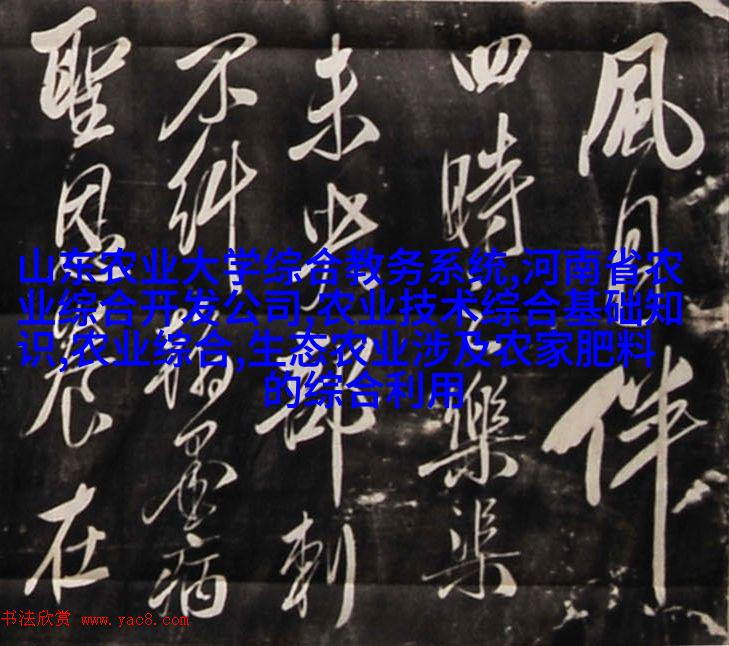 風月伴
四時樂
未部刺
不糾墨病
聖恩在
山东农业大学综合教务系统,河南省农
业综合开发公司,农业技术综合基础知
识,农业综合,生态农业涉及农家肥料
的综合利用
书法欣赏 www.yac8.com